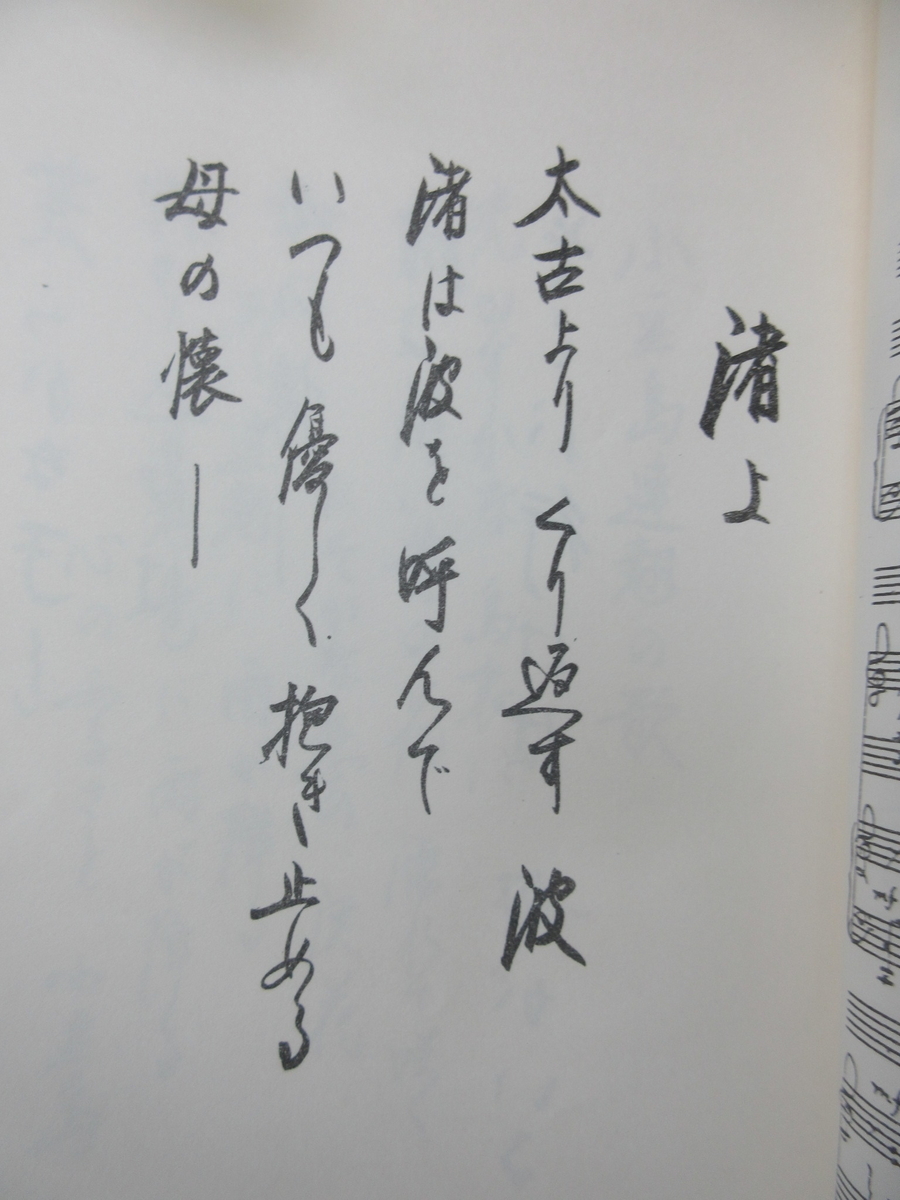 渚よ
太古より くり返す 波
渚は波を呼んで
いつも 優しく 抱き止める
母の懐―